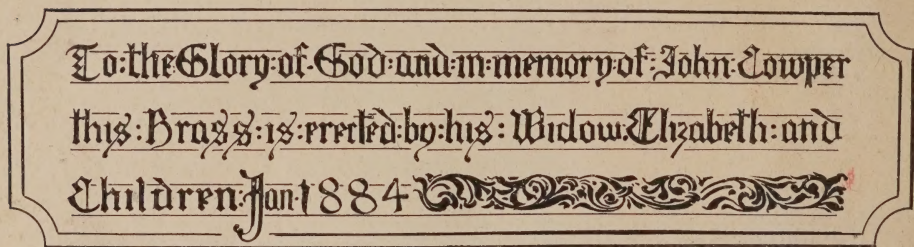 To:the:Glory:of:God:and:in:memory:of:John:Cowper
this:Brass:is:erected:by:his:Widow:Elizabeth:and
Children:Jan 1884